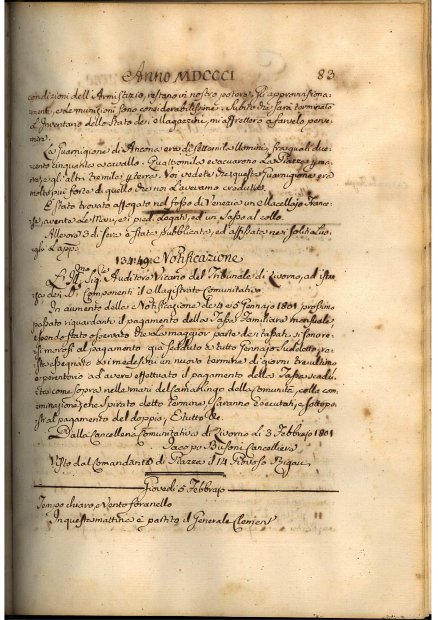 Anno MDCCCI 83
condizioni dell'Armistizio, restano in nostro potere; gli approvvisiona-
menti, e le munizioni sono considerabilissime. Subito che sarà terminato
l'Inventario dello stato dei Magazzini, mi affretterò a farvelo perve-
nire.
La Guarnigione di Ancona era di settemila Uomini, fra i quali due-
cento cinquanta a cavallo. Quattromila evacuarono la Piazza per ma-
re, e gli altri tremila per terra. Voi vedete che questa guarnigione era
molto più forte di quello che noi l'avevamo creduto.
È stato trovato affogato nel fosso di Venezia un Macellajo Fran-
cese, avente le Mani, e i piedi legati, ed un Sasso al collo.
Alle ore 3 di sera è stata pubblicata, ed affissata ne' soliti Luo-
ghi l'app.
134:49: Notificazione
L' Sig. Auditore Vicario del Tribunale di Livorno, ad ist-
dei Componenti il Magistrato Comunitativo
In aumento della Notificazione de 4 e 5 Gennajo 1801 prossimo
passato riguardanti il pagamento della Tassa Familiare mensuale,
essendo stato osservato che la maggior parte dei tassati, si sono re-
si morosi al pagamento già scaduto a tutto Gennajo suddetto, re-
sta assegnato ai medesimi un nuovo termine di giorni tre ultimo
e perentorio ad avere effettuato il pagamento della Tassa scadu-
ta come sopra nelle mani del Camarlingo della Comunità, colla co-
minazione, che spirato detto termine, saranno esecutati, sottopo-
sti al pagamento del doppio, E tutto &c.
Dalla Cancelleria Comunitativa di Livorno li 3 Febbrajo 1801
Jacopo Busoni Cancelliere
Visto dal Comandante di Piazza il 14 Piovoso Bigau.
Giovedì 5 Febbrajo
Tempo chiaro, e Vento foranello
In questa mattina è partito il Generale Clement